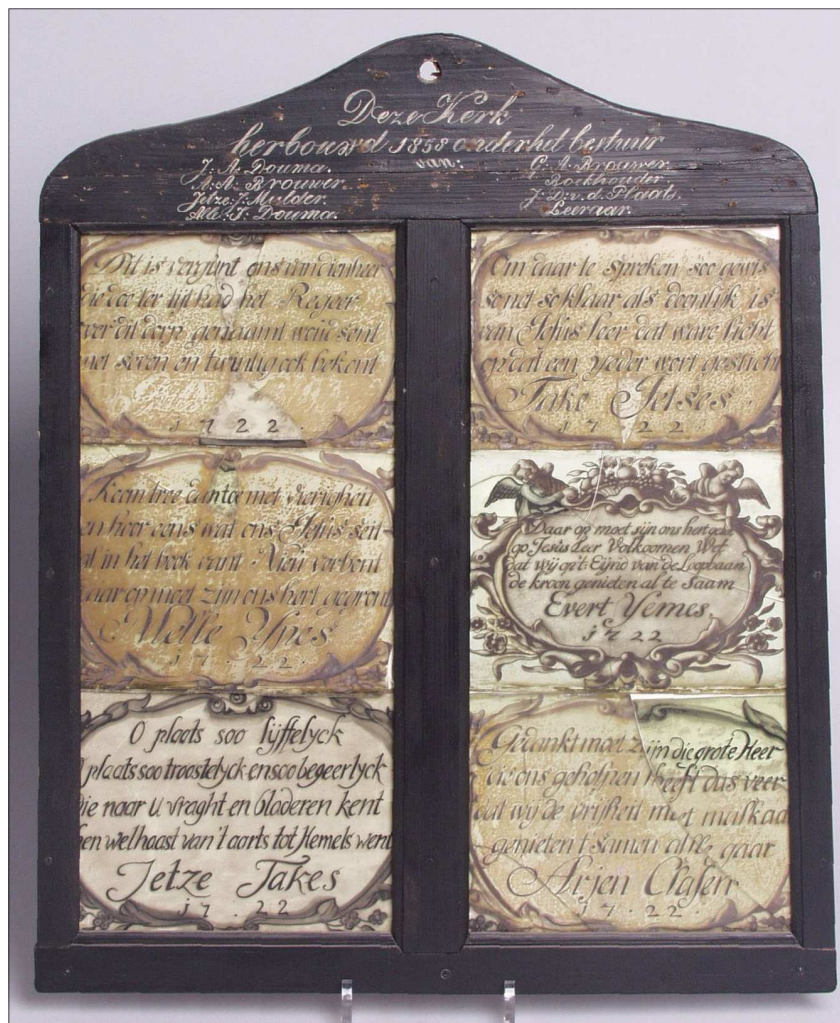 Deze Kerk
herbouwd 1858 onder het bestuur
van:
J. A. Douma.
A. A. Brouwer.
Jetze. J. Mulder.
Alle. J. Douma.
G. A. Brouwer
Bockhouder
J. D. v. d. Plaats.
Leeraar.
Dit is vergunt ons van dien heer
die doe ter tijt had het Regeer
over dit dorp genaamt woudsent
met seven en twintig ook bekent
1722
Koom tree daar toe met vierigheit
en hoor eens wat ons Jesus seit
al in het boek vant Nieu verbont
daar op moet zijn ons hert gegront
Melle Ypes
17.22.
O plaats soo lijffelyck
plaats soo troostelyck en soo begeerlyck
die naar u vraght en bladeren kent
en wel haast van't aorts tot Hemels went
Jetze Takes
17.22
Om daar te spreken soo gewis
so net so klaar als doenlijk is
van Jesus leer dat ware licht
op dat een yeder wort gesticht
Take Jetses.
17 22
Daar op moet sijn ons hert geset
op Jesus Leer Volkoomen Wet
dat wij op't Eijnd van de Loopbaan
de kroon genieten al te Saam
Evert Yemes
1722
Gedankt moet zijn die grote Heer
die ons geholpen heeft dus veer
dat wy de vrijheit met malkaa
genieten t samen alle gaar
Arjen Clasen
17.22.